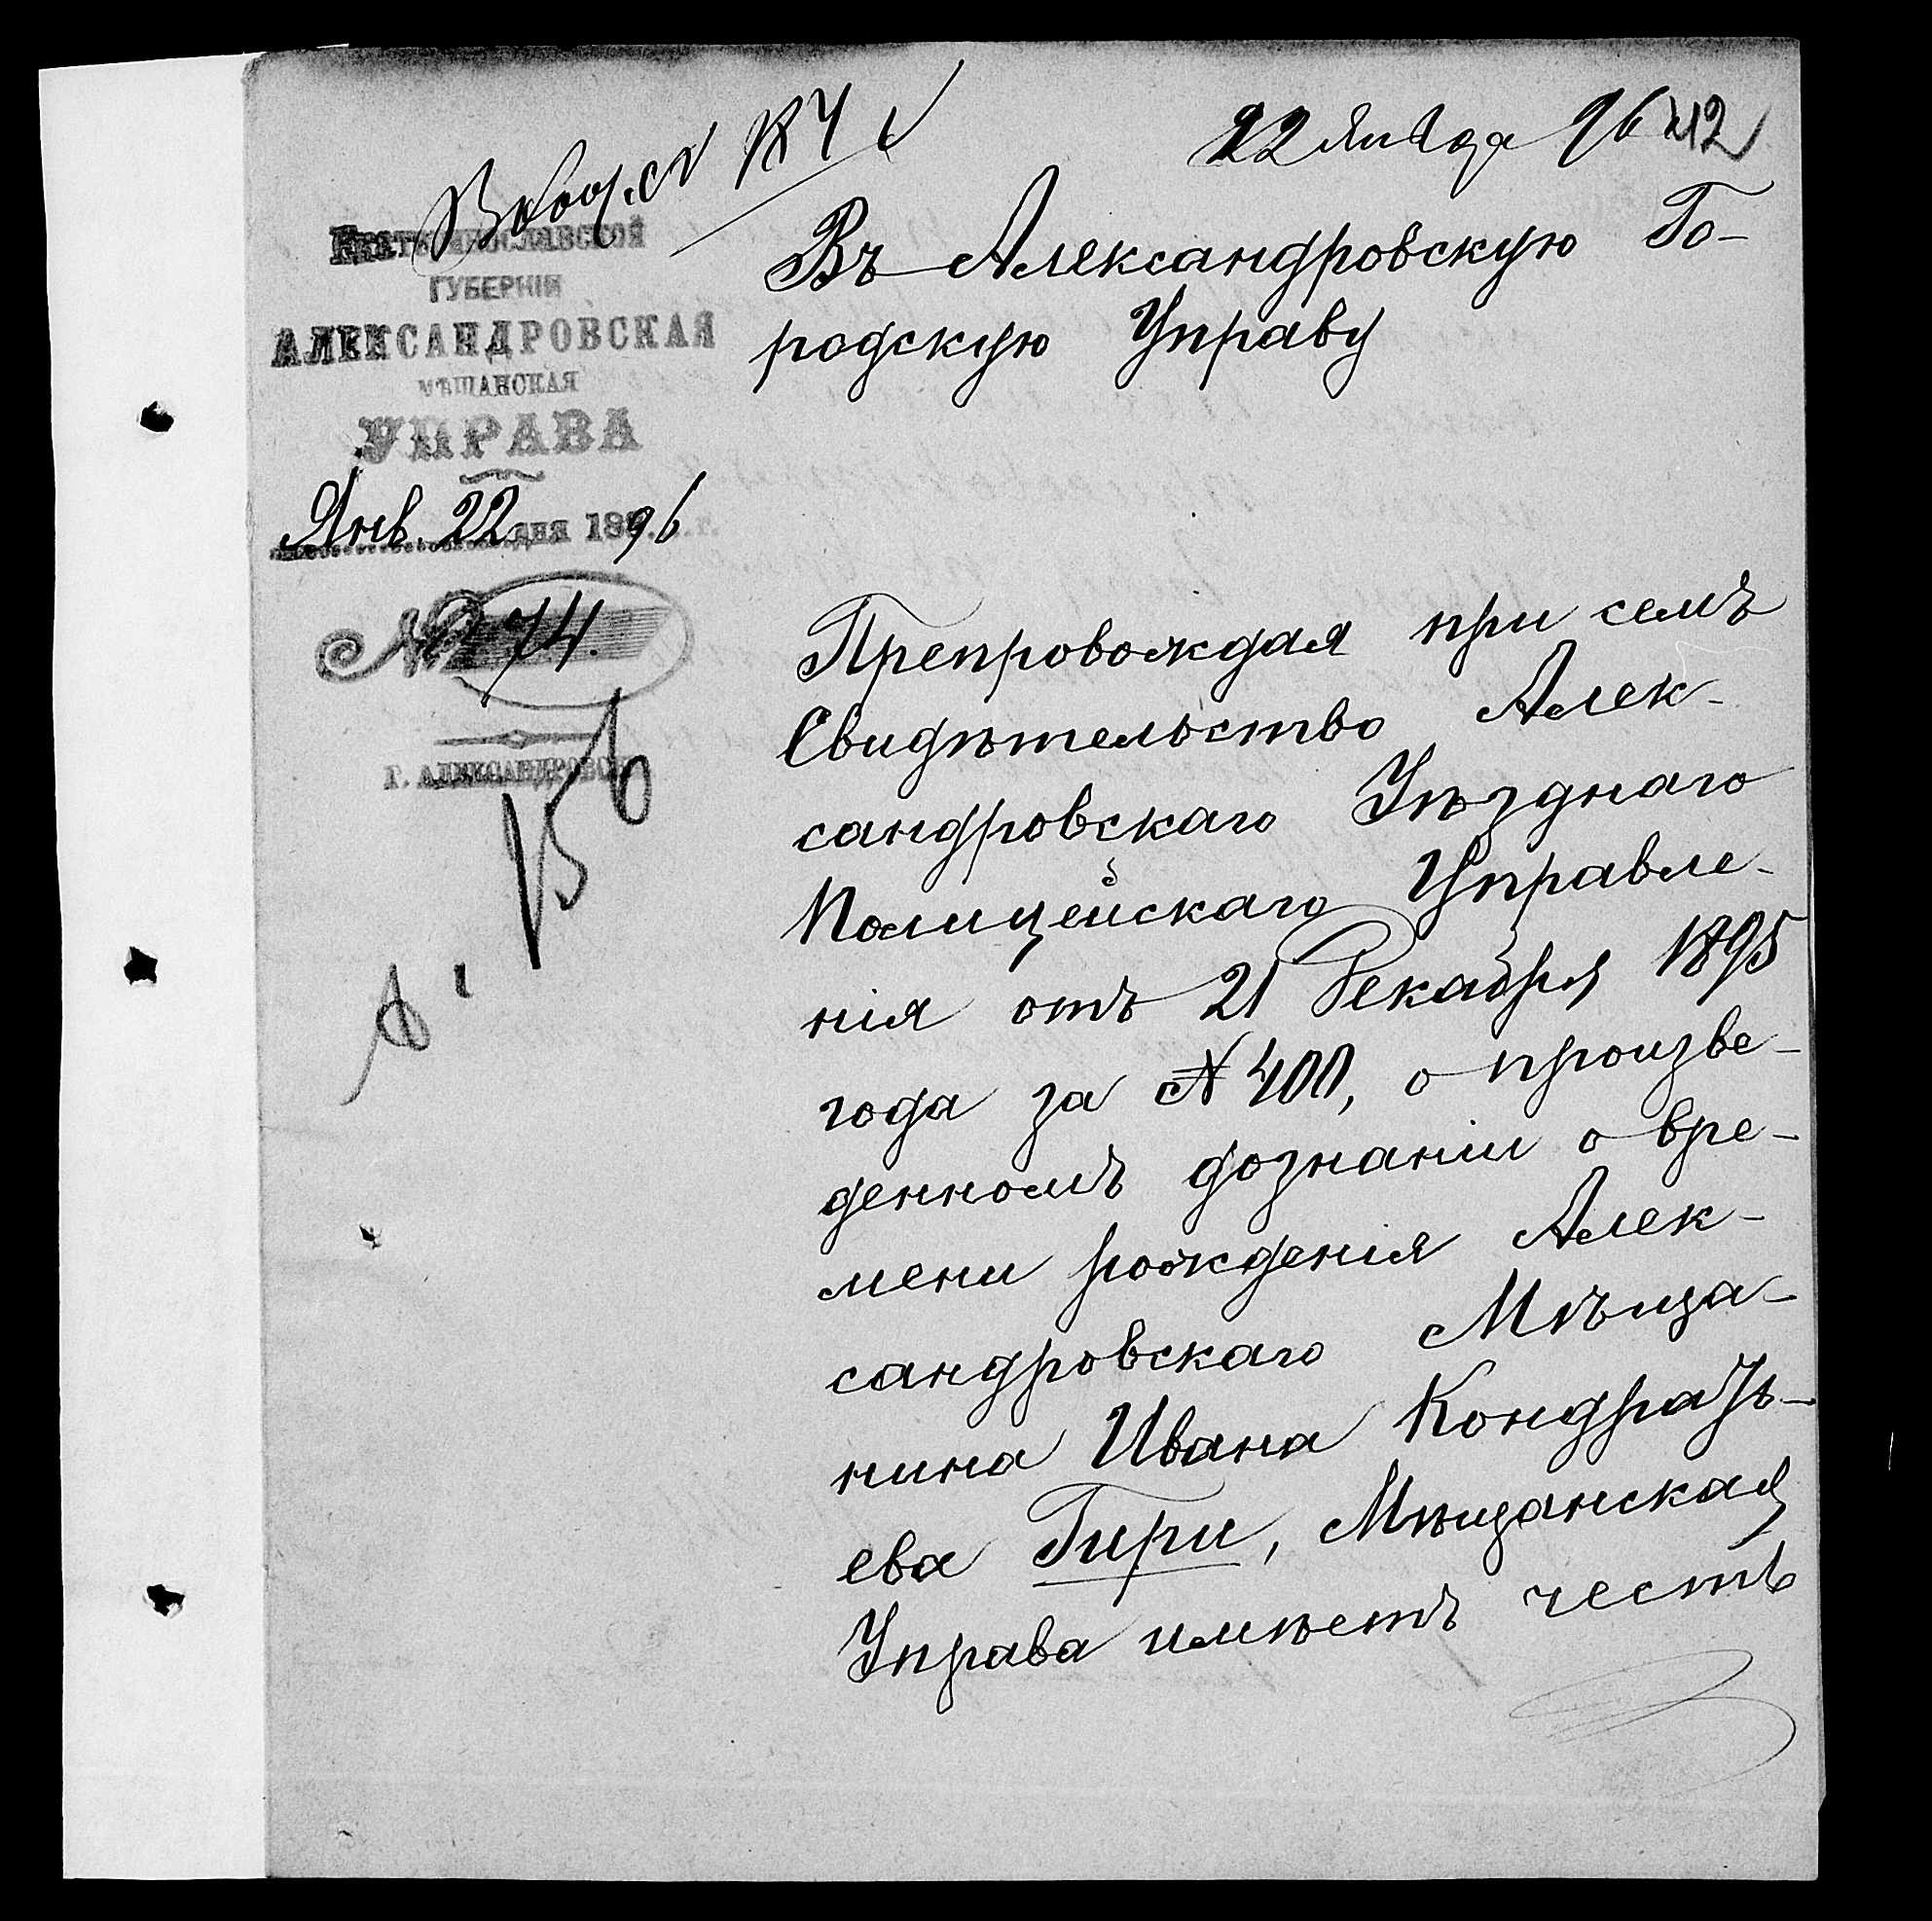 22 Января 96
ЕКАТЕРИНОСЛАВСКОЙ
ГУБЕРНІИ
АЛЕКСАНДРОВСКАЯ
МѢЩАНСКАЯ
УПРАВА
Янв. 22 дня 1896 г.
№ 74.
Г. АЛЕКСАНДРОВСК
Въ Александровскую Го-
родскую Управу
Препровождая при семъ
Свидѣтельство Алек-
сандровскаго Уѣзднаго
Полицейскаго Управле-
нія отъ 21 Декабря 1895
года за № 400, о произве-
денномъ дознаніи о вре-
мени рожденія Алек-
сандровскаго Мѣща-
нина Ивана Кондратъ-
ева Гири, Мѣщанская
Управа имѣетъ честь